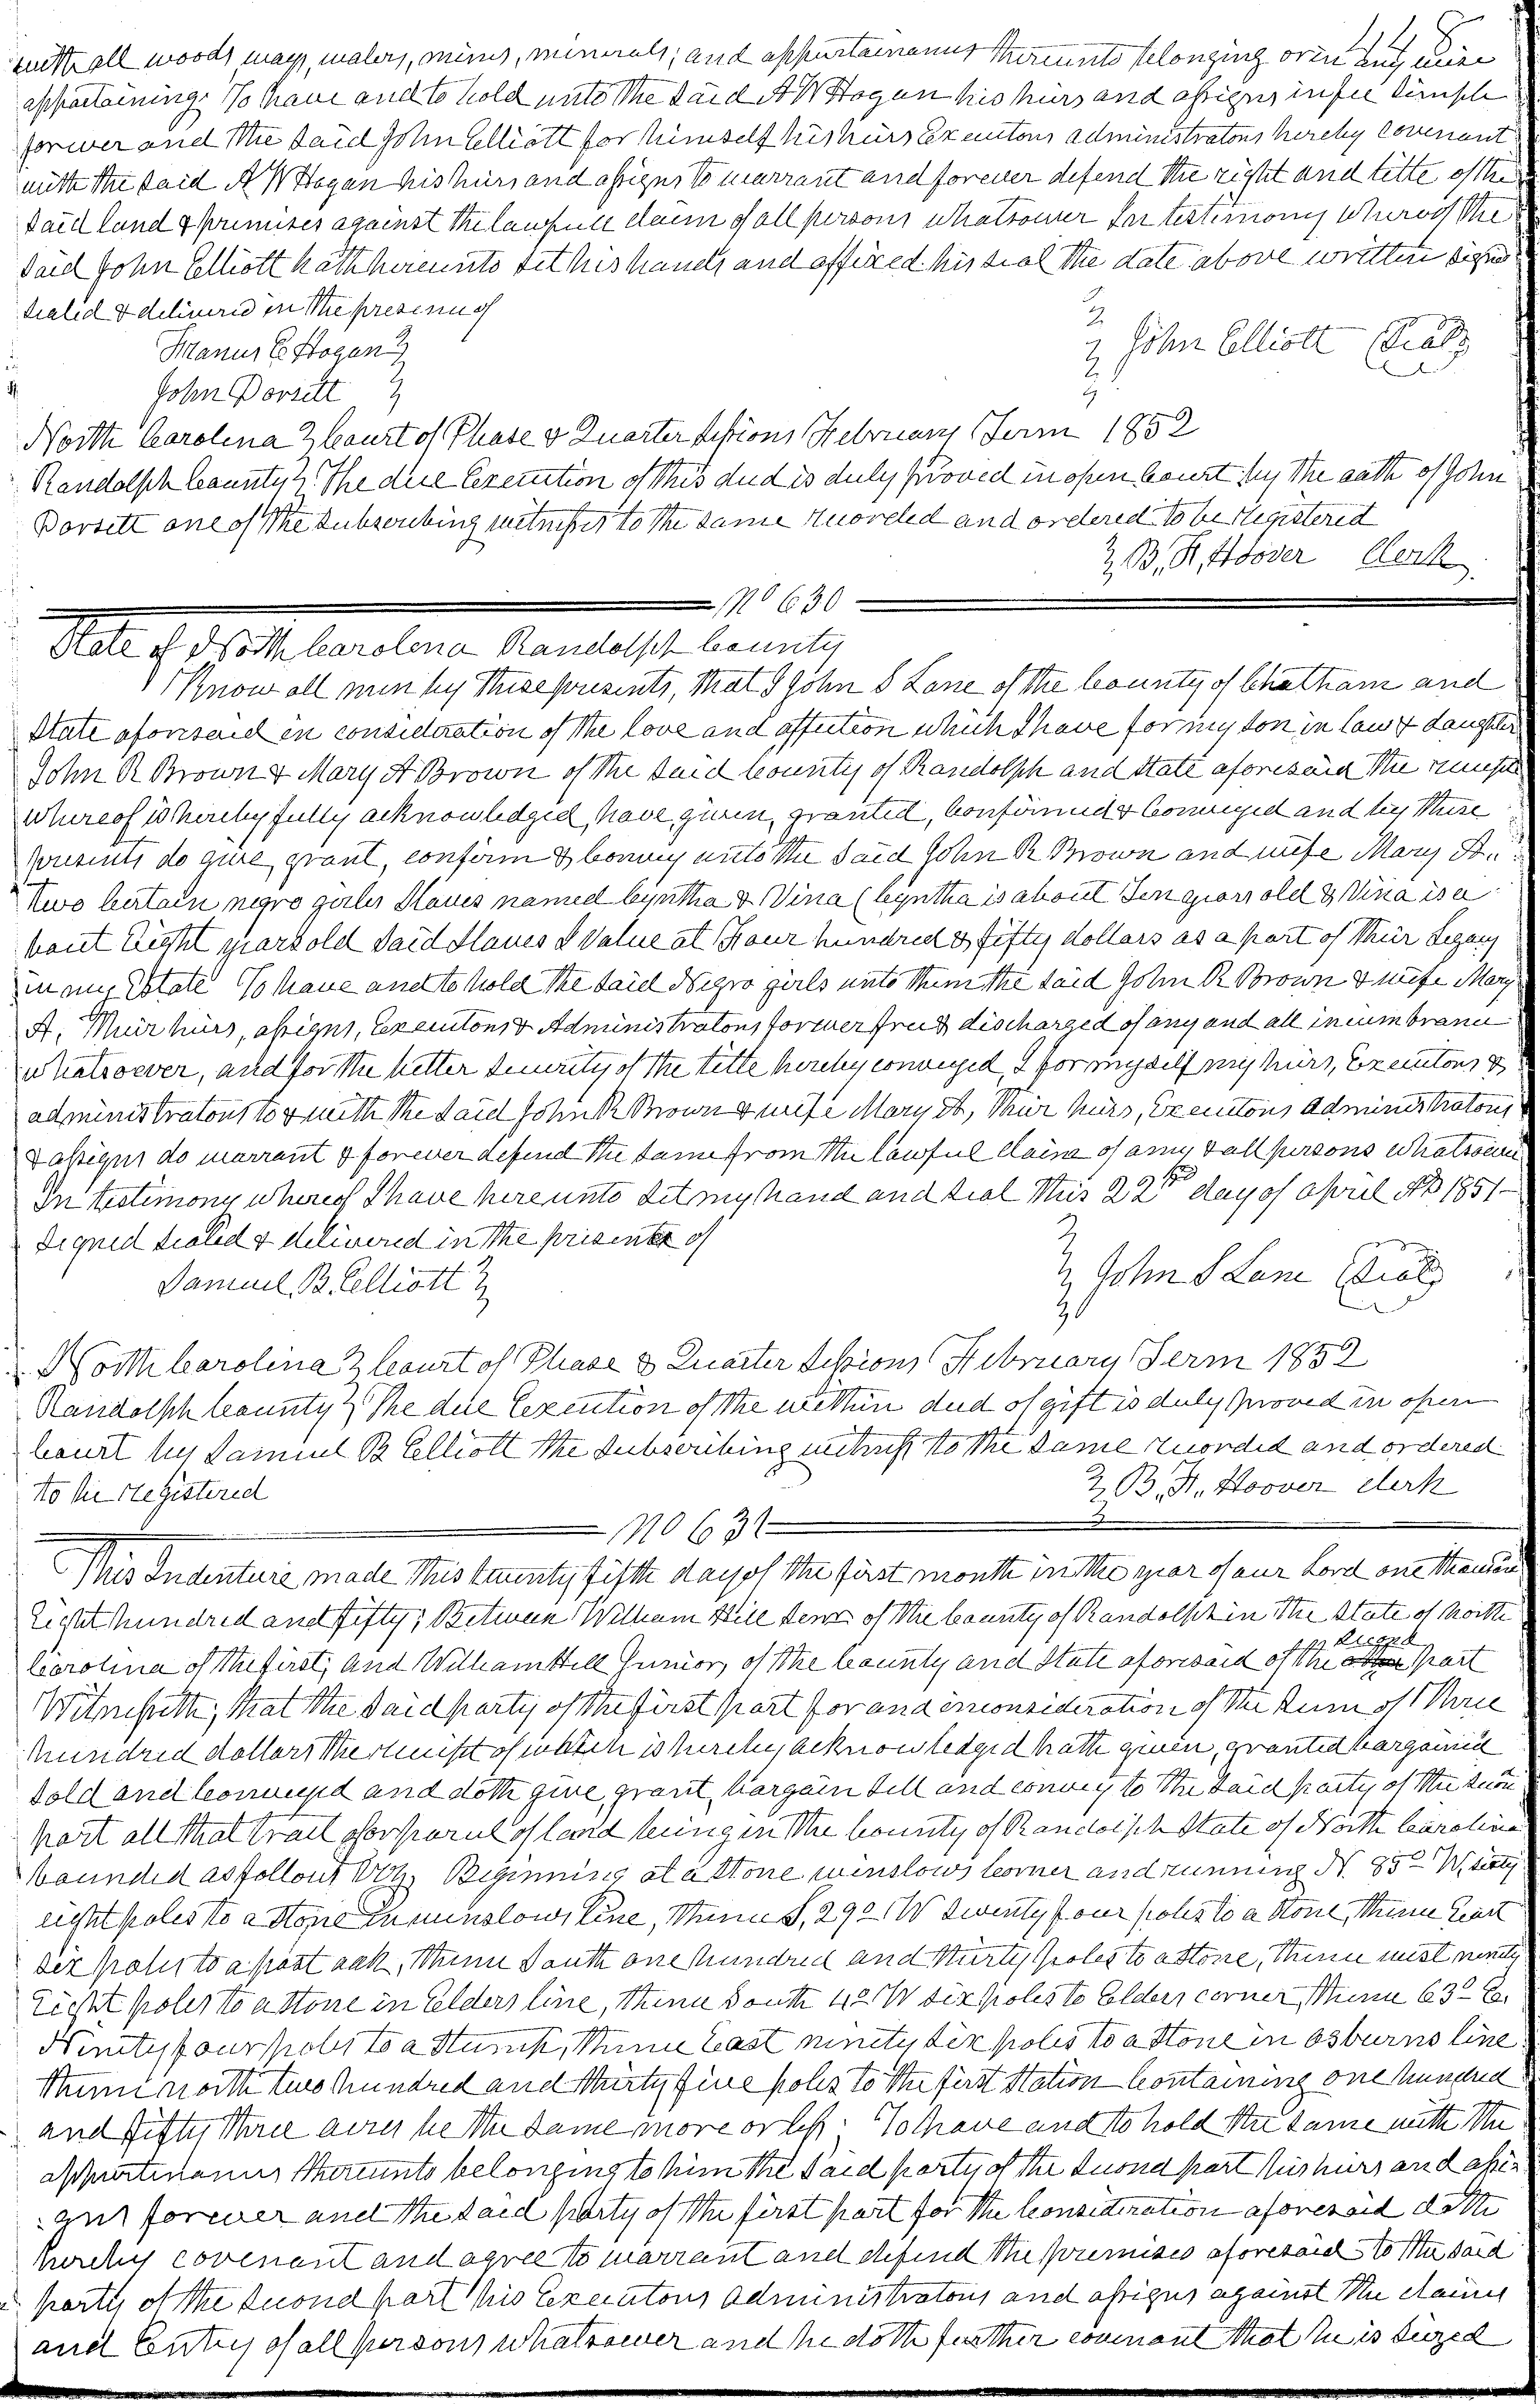 with all woods, ways, waters, mines, minerals; and appurtainances thereunto belonging or in any wise
appartaining. To have and to hold unto the said A W Hogan his heirs and assigns in fee simple
forever and the said John Elliott for himself his heirs Executors administrators hereby covenant
with the said A W Hogan his heirs and assigns to warrant and forever defend the right and title of the
said land & premises against the lawfull claim of all persons whatsoever In testimony whereof the
said John Elliott hath hereunto set his hands and affixed his seal the date above written signed
sealed & delivered in the presence of
Manus C. Hogan
John Dorsett
John Elliott (Seal)
North Carolina } Court of Phase & Quarter Sessions February Term 1852
Randolph County } The due Execution of this deed is duly proved in open Court by the oath of John
Dorsett one of the subscribing witnesses to the same recorded and ordered to be registered
B. F. Hoover Clerk
No 630
State of North Carolina Randolph County
Know all men by these presents, that I John S Lane of the County of Chatham and
State aforesaid in consideration of the love and affection which I have for my son in law & daughter
John R Brown & Mary A Brown of the said County of Randolph and State aforesaid the receipt
whereof is hereby fully acknowledged, have, given, granted, Confirmed & Conveyed and by these
presents do give, grant, confirm & Convey unto the said John R Brown and wife Mary A.
Two Certain negro girles Slaves named Cyntha & Vina (Cyntha is about Ten years old & Vina is a
bout Eight years old said Slaves I value at Four hundred & fifty dollars as a part of their Legacy
in my Estate To have and to hold the said Negro girls unto them the said John R Brown & wife Mary
A. their heirs, assigns, Executors & Administrators forever free & discharged of any and all incumbrance
whatsoever, and for the better security of the title hereby conveyed, I for myself my heirs, Executors &
administrators to & with the said John R Brown & wife Mary A, their heirs, Executors Administrators
& assigns do warrant & forever defend the same from the lawful claim of any & all persons whatsoever
In testimony whereof I have hereunto set my hand and seal this 22nd day of april AD 1851-
Signed sealed & delivered in the presence of
Samuel B. Elliott
John S Lane (Seal)
North Carolina } Court of Phase & Quarter Sessions February Term 1852
Randolph County } The due Execution of the within deed of gift is duly proved in open
Court by Samuel B Elliott the subscribing witness to the same recorded and ordered
to be registered
B. F. Hoover clerk
No 631
This Indenture made this twenty fifth day of the first month in the year of our Lord one thousand
Eight hundred and fifty; Between William Hill Senr of the County of Randolph in the State of North
Carolina of the first; and William Hill Junior, of the County and State aforesaid of the second part
Witnesseth; that the said party of the first part for and in consideration of the sum of Three
hundred dollars the receipt of which is hereby acknowledged hath given, granted bargained
sold and Conveyed and doth give, grant, bargain sell and convey to the said party of the second
part all that tract or parcel of land being in the County of Randolph State of North Carolina
bounded as follows Viz, Beginning at a Stone winslows Corner and running N. 85° W. sixty
eight poles to a Stone in winslows line, thence S, 29° W twenty four poles to a stone, thence East
six poles to a post oak, thence South one hundred and thirty poles to a stone, thence west ninety
Eight poles to a stone in Elders line, thence South 42 W six poles to Elders corner, thence 63° E.
Ninety four poles to a stump, thence East ninety six poles to a stone in osburns line
thence north two hundred and thirty five poles to the first Station Containing one hundred
and fifty three acres be the same more or less. To have and to hold the same with the
appurtenances thereunto belonging to him the said party of the second part his heirs and assi-
gns forever and the said party of the first part for the Consideration aforesaid doth
hereby covenant and agree to warrant and defend the premises aforesaid to the said
party of the second part his Executors Administrators and assigns against the claims
and Entry of all persons whatsoever and he doth further covenant that he is seized